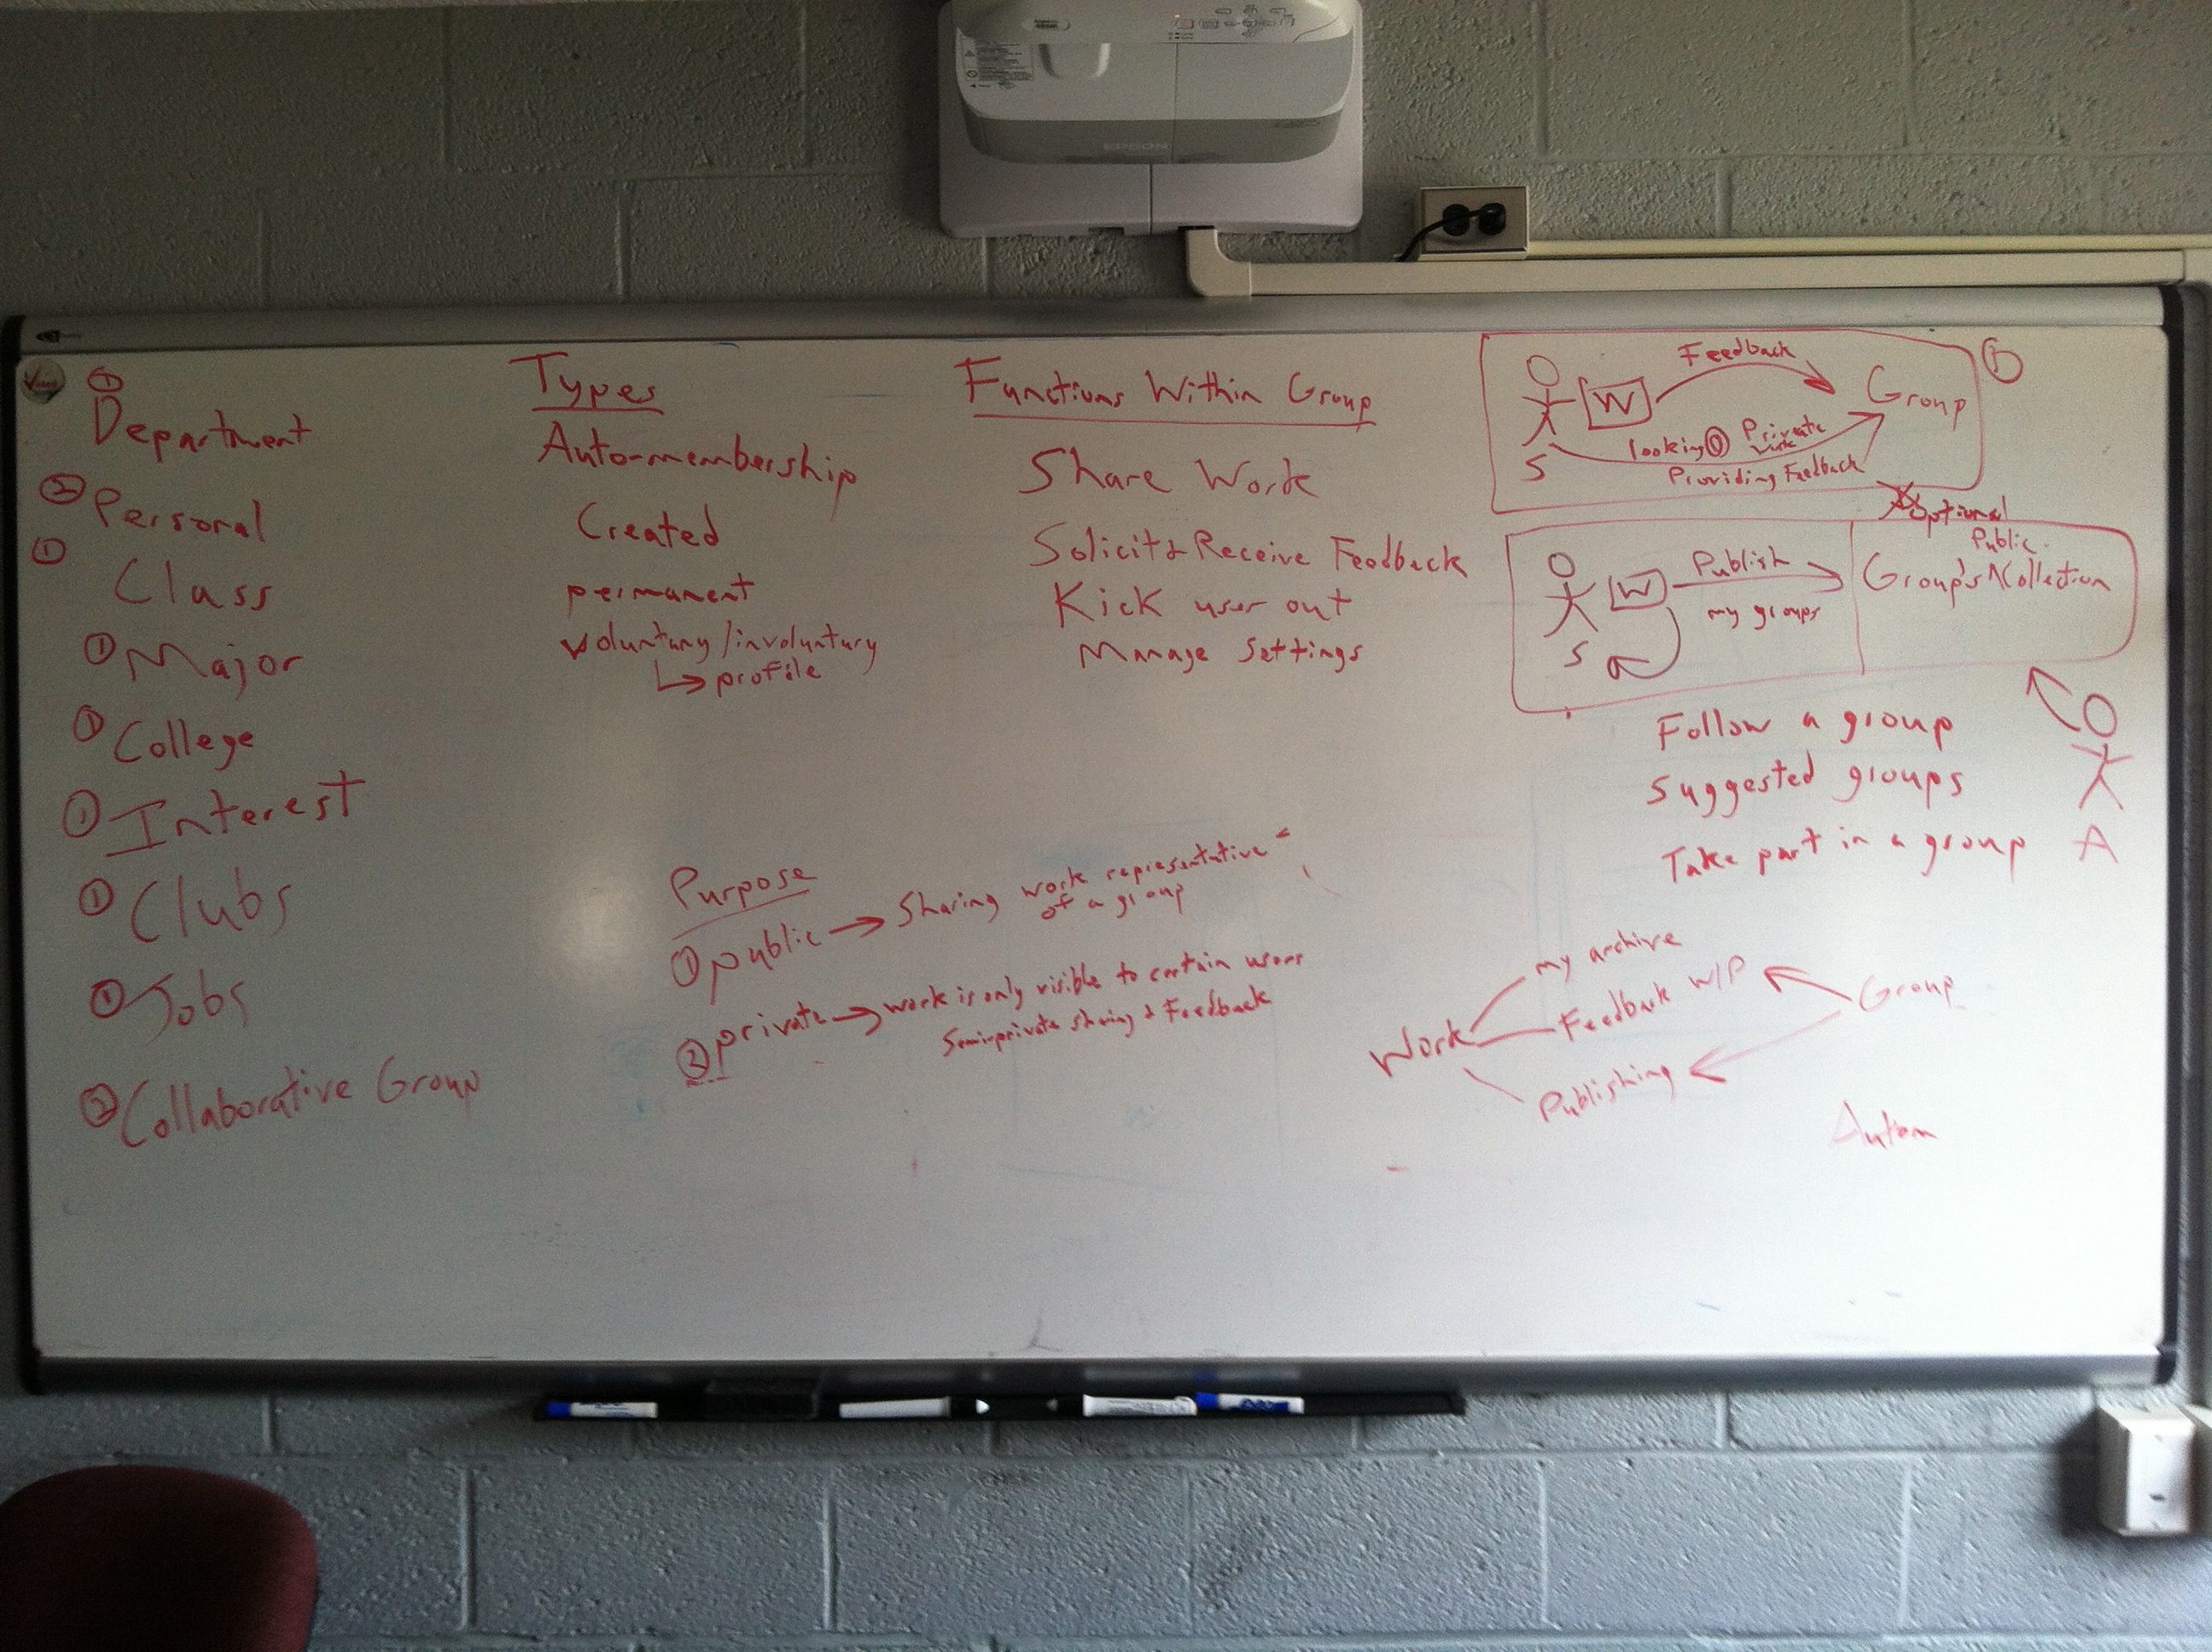 EPSON
①
Department
② Personal
①
Class
① Major
① College
① Interest
① Clubs
① Jobs
② Collaborative Group
Types
Auto-membership
Created
permanent
voluntary/involuntary
↳ profile
Functions Within Group
Share Work
Solicit & Receive Feedback
Kick user out
Manage Settings
Purpose
① public → Sharing work representative
of a group
② private → work is only visible to certain users
Semi-private sharing & Feedback
Feedback
W
Group
looking @ Private
work
Providing Feedback
S
Optional
Public
W
Publish
my groups
Group's Collection
S
Follow a group
Suggested groups
Take part in a group
A
my archive
Work
Feedback W/P
Group
Publishing
Autom